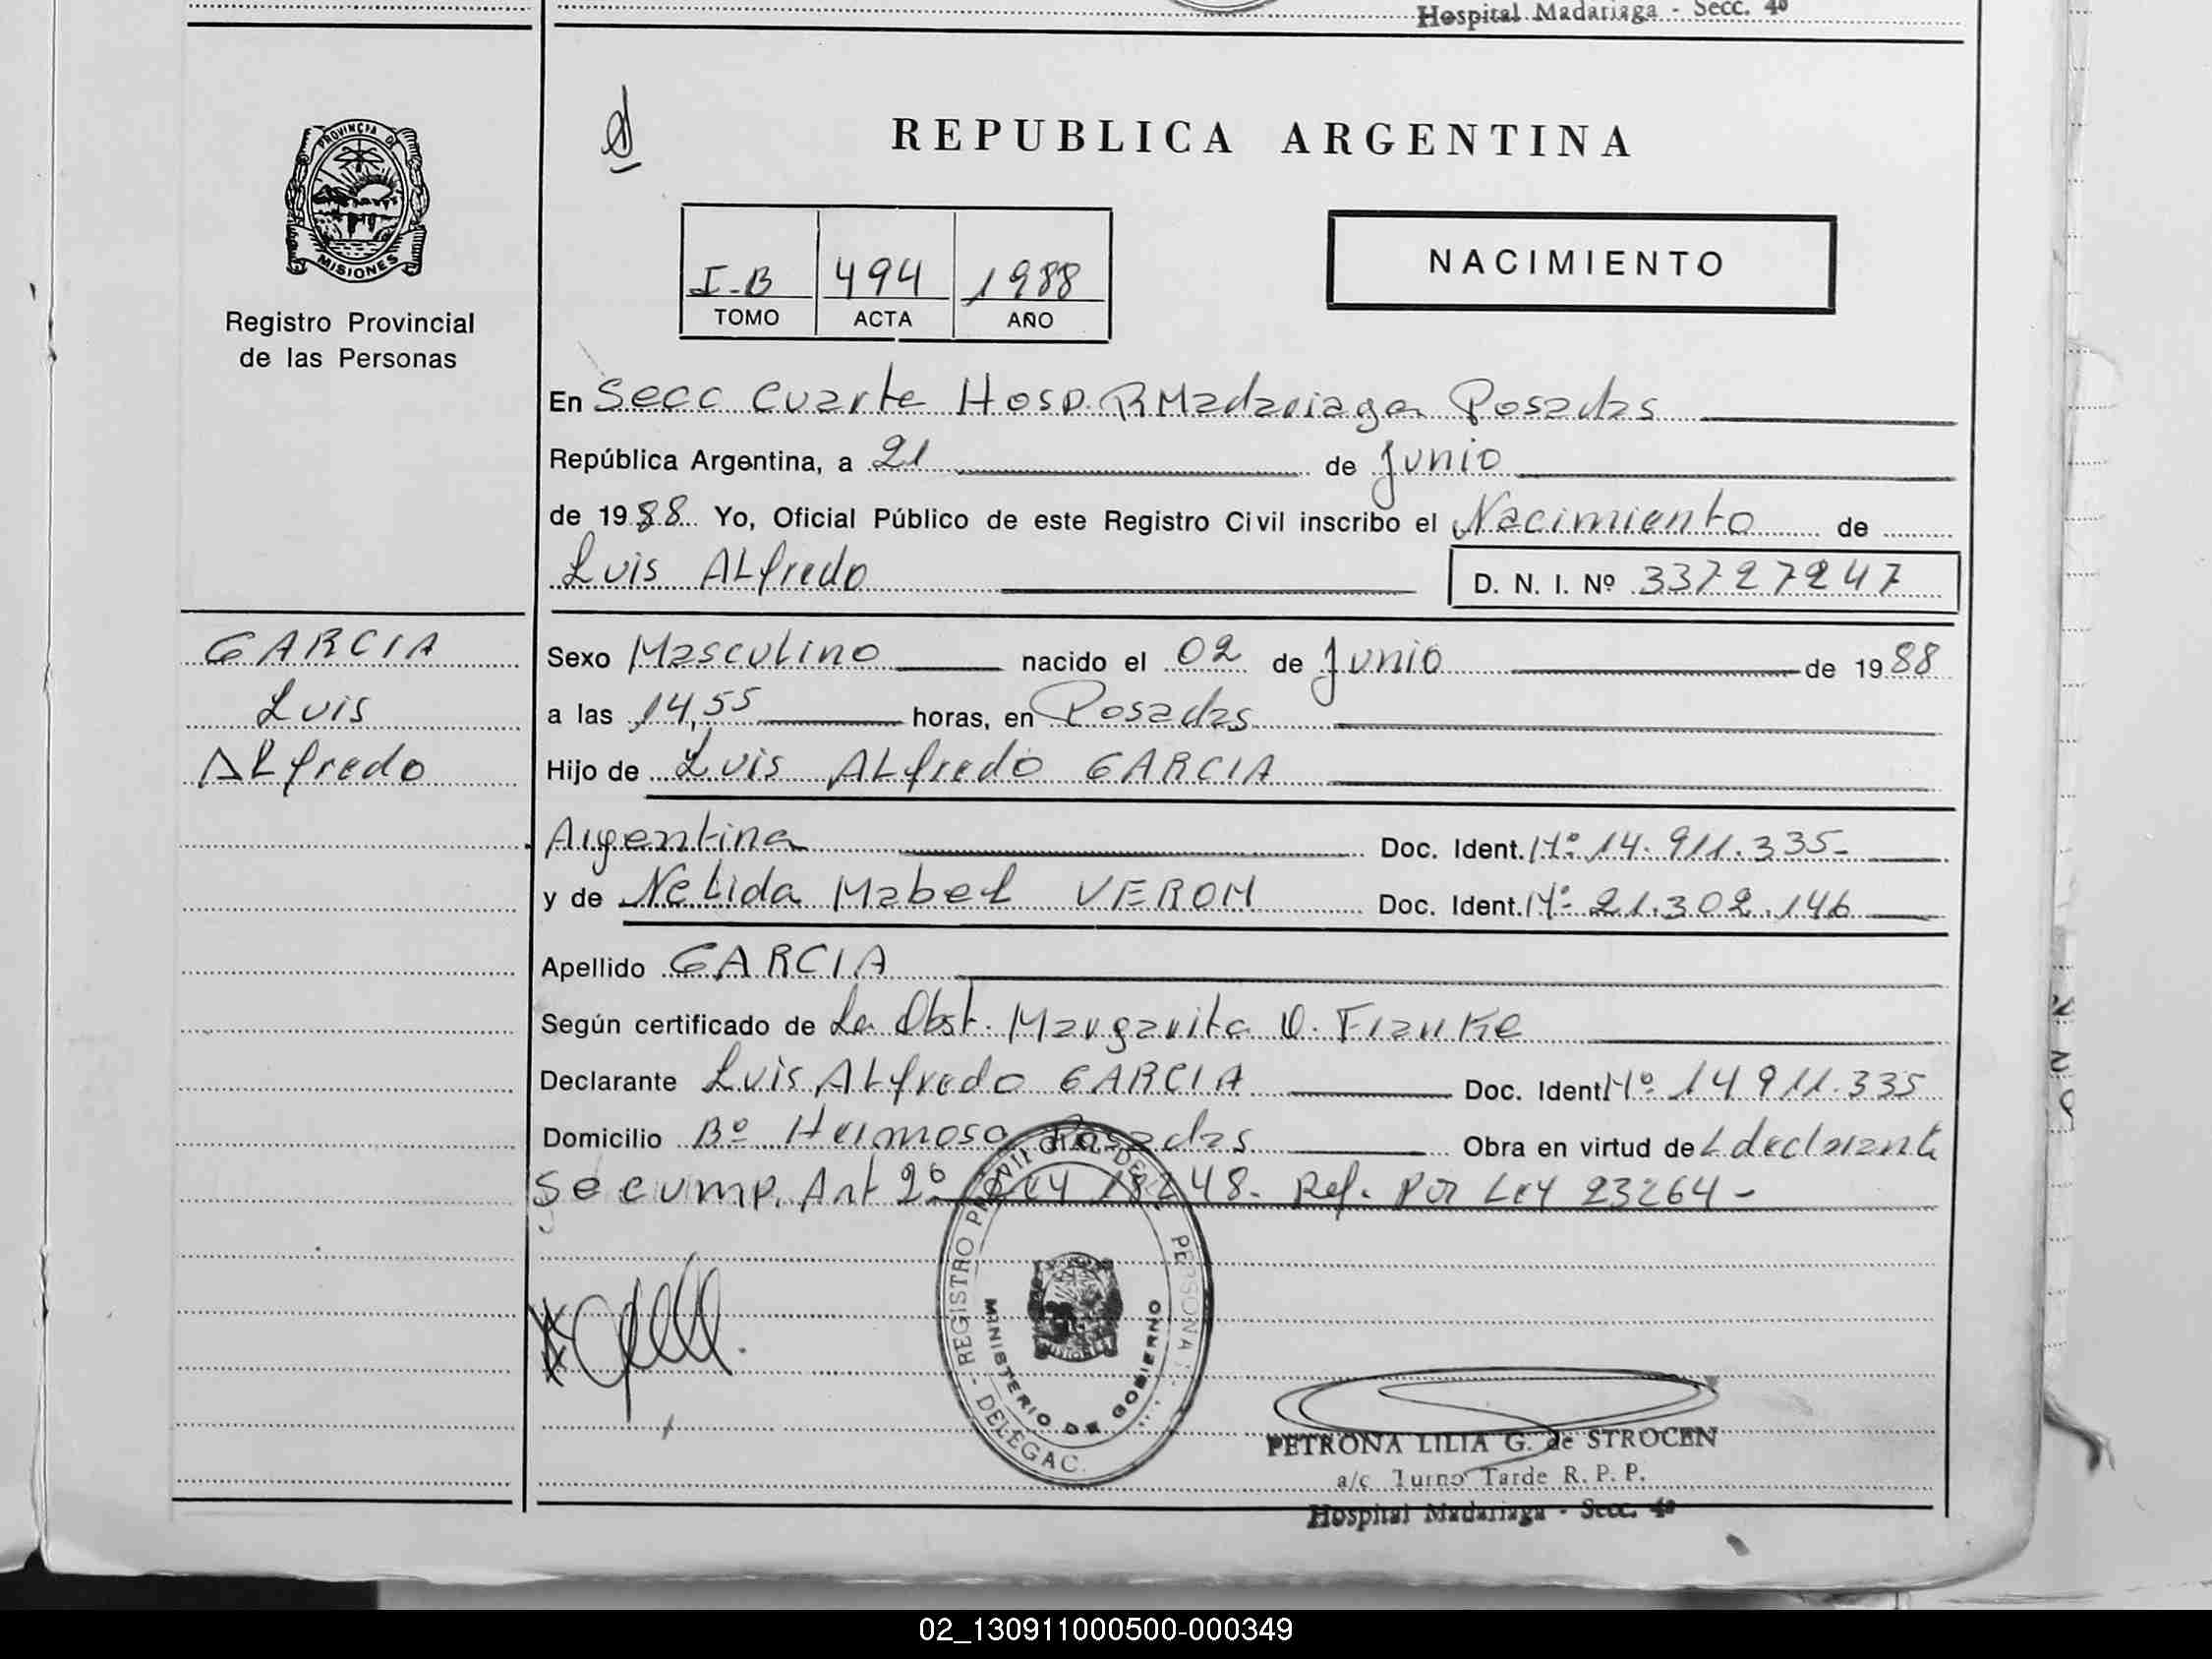 Hospital Madariaga - Secc. 4ª
PROVINCIA DE
MISIONES
Registro Provincial
de las Personas
REPUBLICA ARGENTINA
I-B 494 1988
TOMO ACTA AÑO
NACIMIENTO
En Secc Cuarta Hosp. R Madariaga Posadas
República Argentina, a 21 de Junio
de 1988 Yo, Oficial Público de este Registro Civil inscribo el Nacimiento de
Luis ALfredo D. N. I. Nº 33727247
GARCIA
Luis
ALfredo
Sexo Masculino nacido el 02 de Junio de 1988
a las 14,55 horas, en Posadas
Hijo de Luis ALfredo GARCIA
Argentina Doc. Ident. Mº 14.911.335-
y de NeLida MabeL VEROM Doc. Ident. Mº 21.302.146
Apellido GARCIA
Según certificado de La Obst. Margarita O. Franke
Declarante Luis ALfredo GARCIA Doc. Ident Mº 14911.335
Domicilio Bº Hermoso Posadas Obra en virtud de L declarante
Se cump. Art 2º Ley 18248- Ref. Por Ley 23264-
DELEGAC. - REGISTRO PROVINCIAL DE PERSONAS
MINISTERIO DE GOBIERNO
MISIONES
PETRONA LILIA G. de STROCEN
a/c Turno Tarde R. P. P.
Hospital Madariaga - Secc. 4ª
02_130911000500-000349